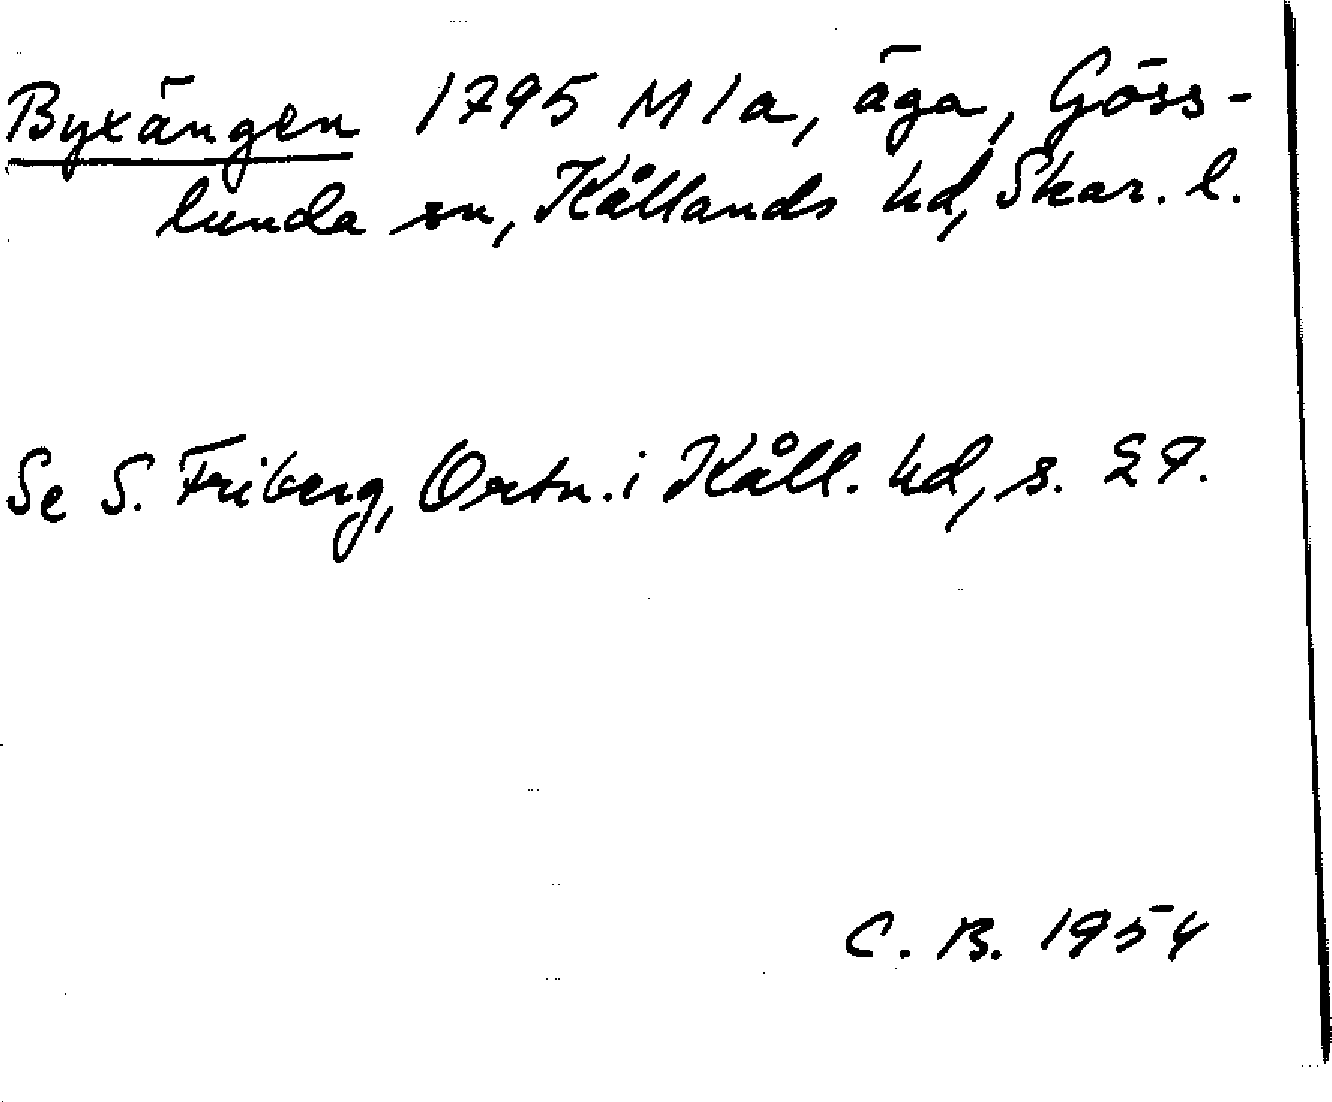 Byxängen 1795 M1a, äga, Göss-
lunda sn, Kållands hd, Skar. l.
Se S. Friberg, Ortn. i Kåll. hd, s. 29.
C. B. 1954